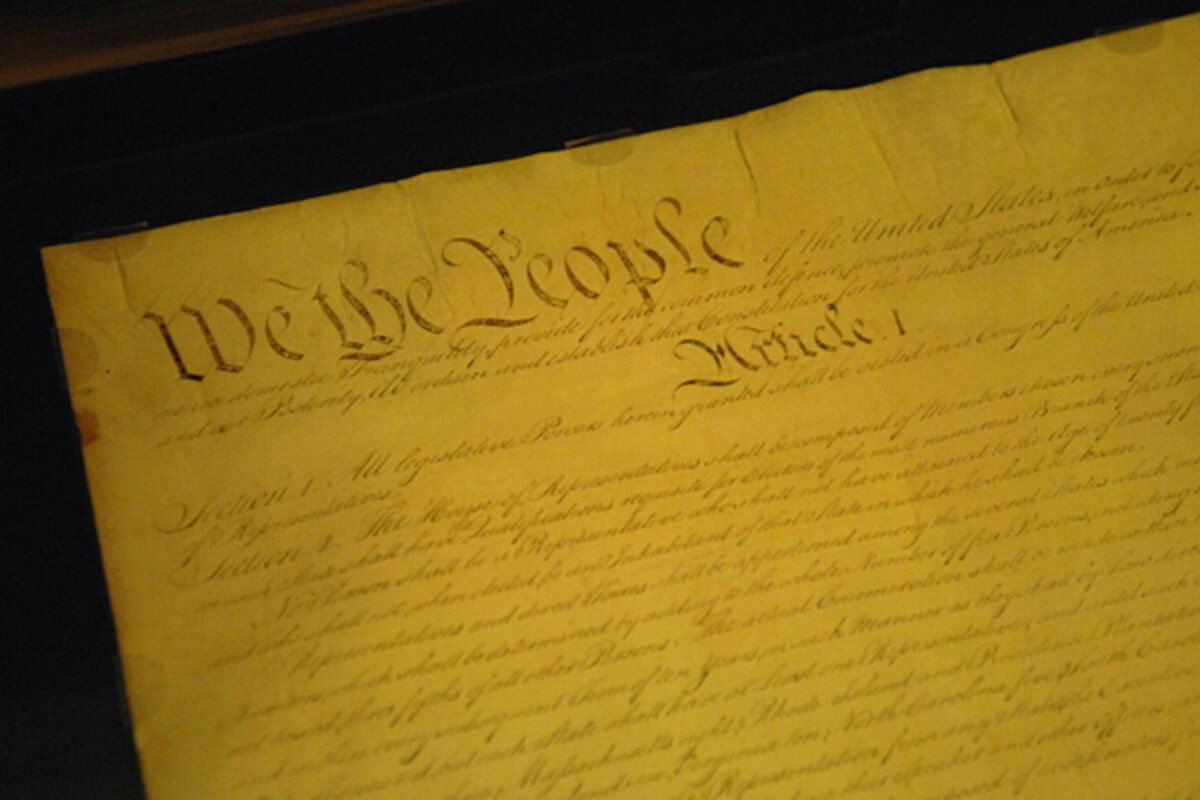 We the People of the United States, in Order to
insure domestic Tranquility, provide for the common defence, promote the general Welfare, and
and our Posterity, do ordain and establish this Constitution for the United States of America.
Article. I.
Section. 1. All legislative Powers herein granted shall be vested in a Congress of the United
of Representatives.
Section. 2. The House of Representatives shall be composed of Members chosen every
in each State shall have the Qualifications requisite for Electors of the most numerous Branch of the
No Person shall be a Representative who shall not have attained to the Age of twenty
and who shall not, when elected, be an Inhabitant of that State in which he shall be chosen.
Representatives and direct Taxes shall be apportioned among the several States which
Numbers, which shall be determined by adding to the whole Number of free Persons, including
not taxed, three fifths of all other Persons. The actual Enumeration shall be made within
and within every subsequent Term of ten Years, in such Manner as they shall by Law
but each State shall have at Least one Representative; and until such
Massachusetts eight, Rhode Island and Providence
Virginia ten, North Carolina five, South
Representation from any State, the Executive
Speaker and other Officers